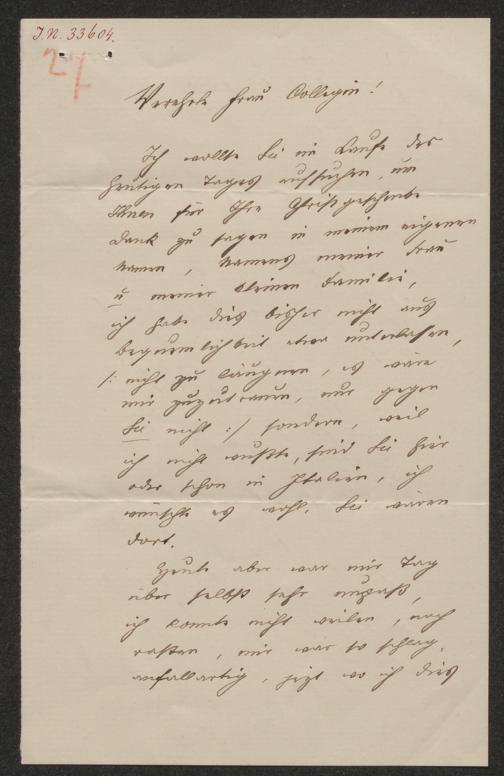 J.N. 33604.
27
Verehrte Frau Collegin!
Ich wollte Sie im Laufe des
heutigen Tages aufsuchen, um
Ihnen für Ihre Christgeschenke
Dank zu sagen in meinem eigenen
Namen, Namens meiner Frau
u meiner kleinen Familie,
ich habe dies bisher nicht aus
Bequemlichkeit etwa unterlassen,
/: nicht zu läugnen, es wäre
mir zuzutrauen, nur gegen
Sie nicht :/ sondern, weil
ich nicht wußte, sind Sie hier
oder schon in Italien, ich
wünschte es wohl, Sie wären
dort.
Heute aber war mir Tag
über selbst sehr unpaß,
ich konnte nicht weilen, noch
rasten, mir war so schlag-
anfallartig, jetzt wo ich dies